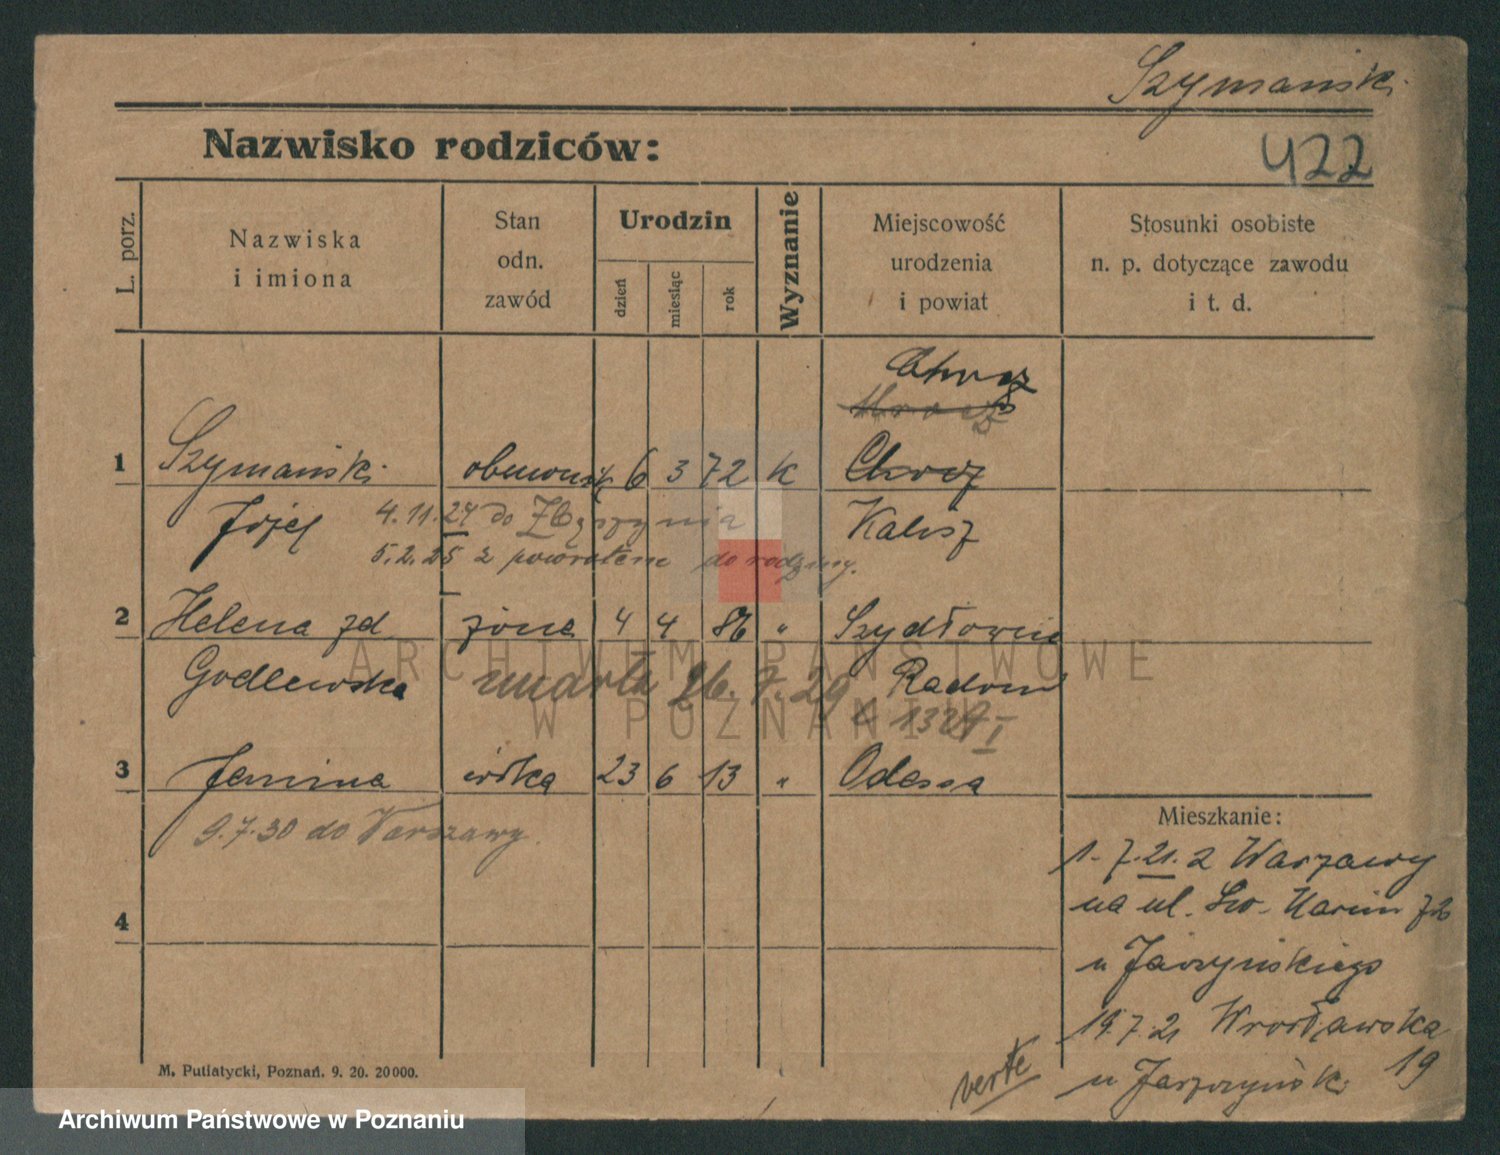 Szymański
422
Nazwisko rodziców:
L. porz.
Nazwiska
i imiona
Stan
odn.
zawód
Urodzin
dzień
miesiąc
rok
Wyznanie
Miejscowość
urodzenia
i powiat
Stosunki osobiste
n. p. dotyczące zawodu
i t. d.
Chocz
1 Szymański obuwnik 6 3 72 k Chocz
Józef 4.11.24 do Zbąszynia Kalisz
5.2.25 z powrotem do rodziny.
2 Helena zd żona 4 4 86 " Szydłowiec
Godlewska umarła 26.7.29 Radom
1329 I
3 Janina córka 23 6 13 " Odessa
9.7.30 do Warszawy.
4
Mieszkanie:
1.7.21. z Warszawy
na ul. Św. Marcin 72
u Jarzyńskiego
19.7.21 Wrocławska
19
u Jarzyńsk.
verte
M. Putiatycki, Poznań. 9. 20. 20000.
ARCHIWUM PAŃSTWOWE
W POZNANIU
Archiwum Państwowe w Poznaniu